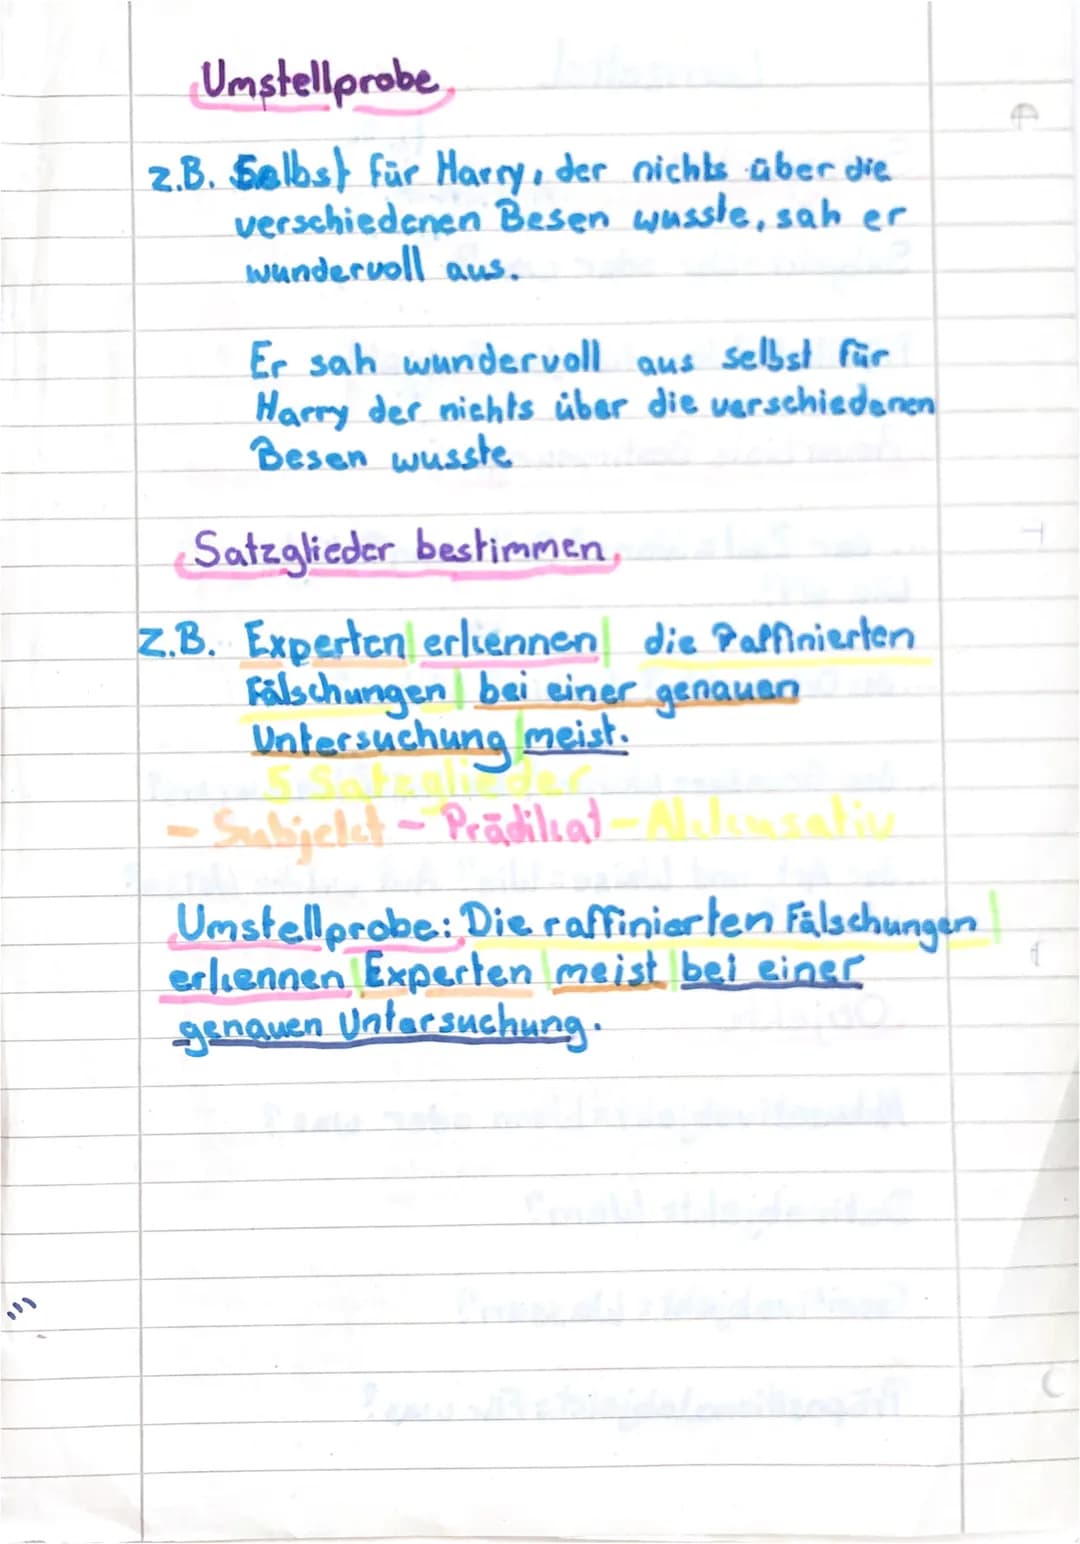 Umstellprobe
z.B. Selbst für Harry, der nichts über die
verschiedenen Besen wusste, sah er
wundervoll aus.
Er sah wundervoll aus selbst für
Harry der nichts über die verschiedenen
Besen wusste
Satzglieder bestimmen
z.B. Experten| erkennen| die Raffinierten
Fälschungen | bei einer genauen
Untersuchung |meist.
5 Satzglieder
- Subjekt - Prädikat - Akkusativ
Umstellprobe: Die raffinierten Fälschungen |
erkennen |Experten |meist |bei einer
genauen Untersuchung.